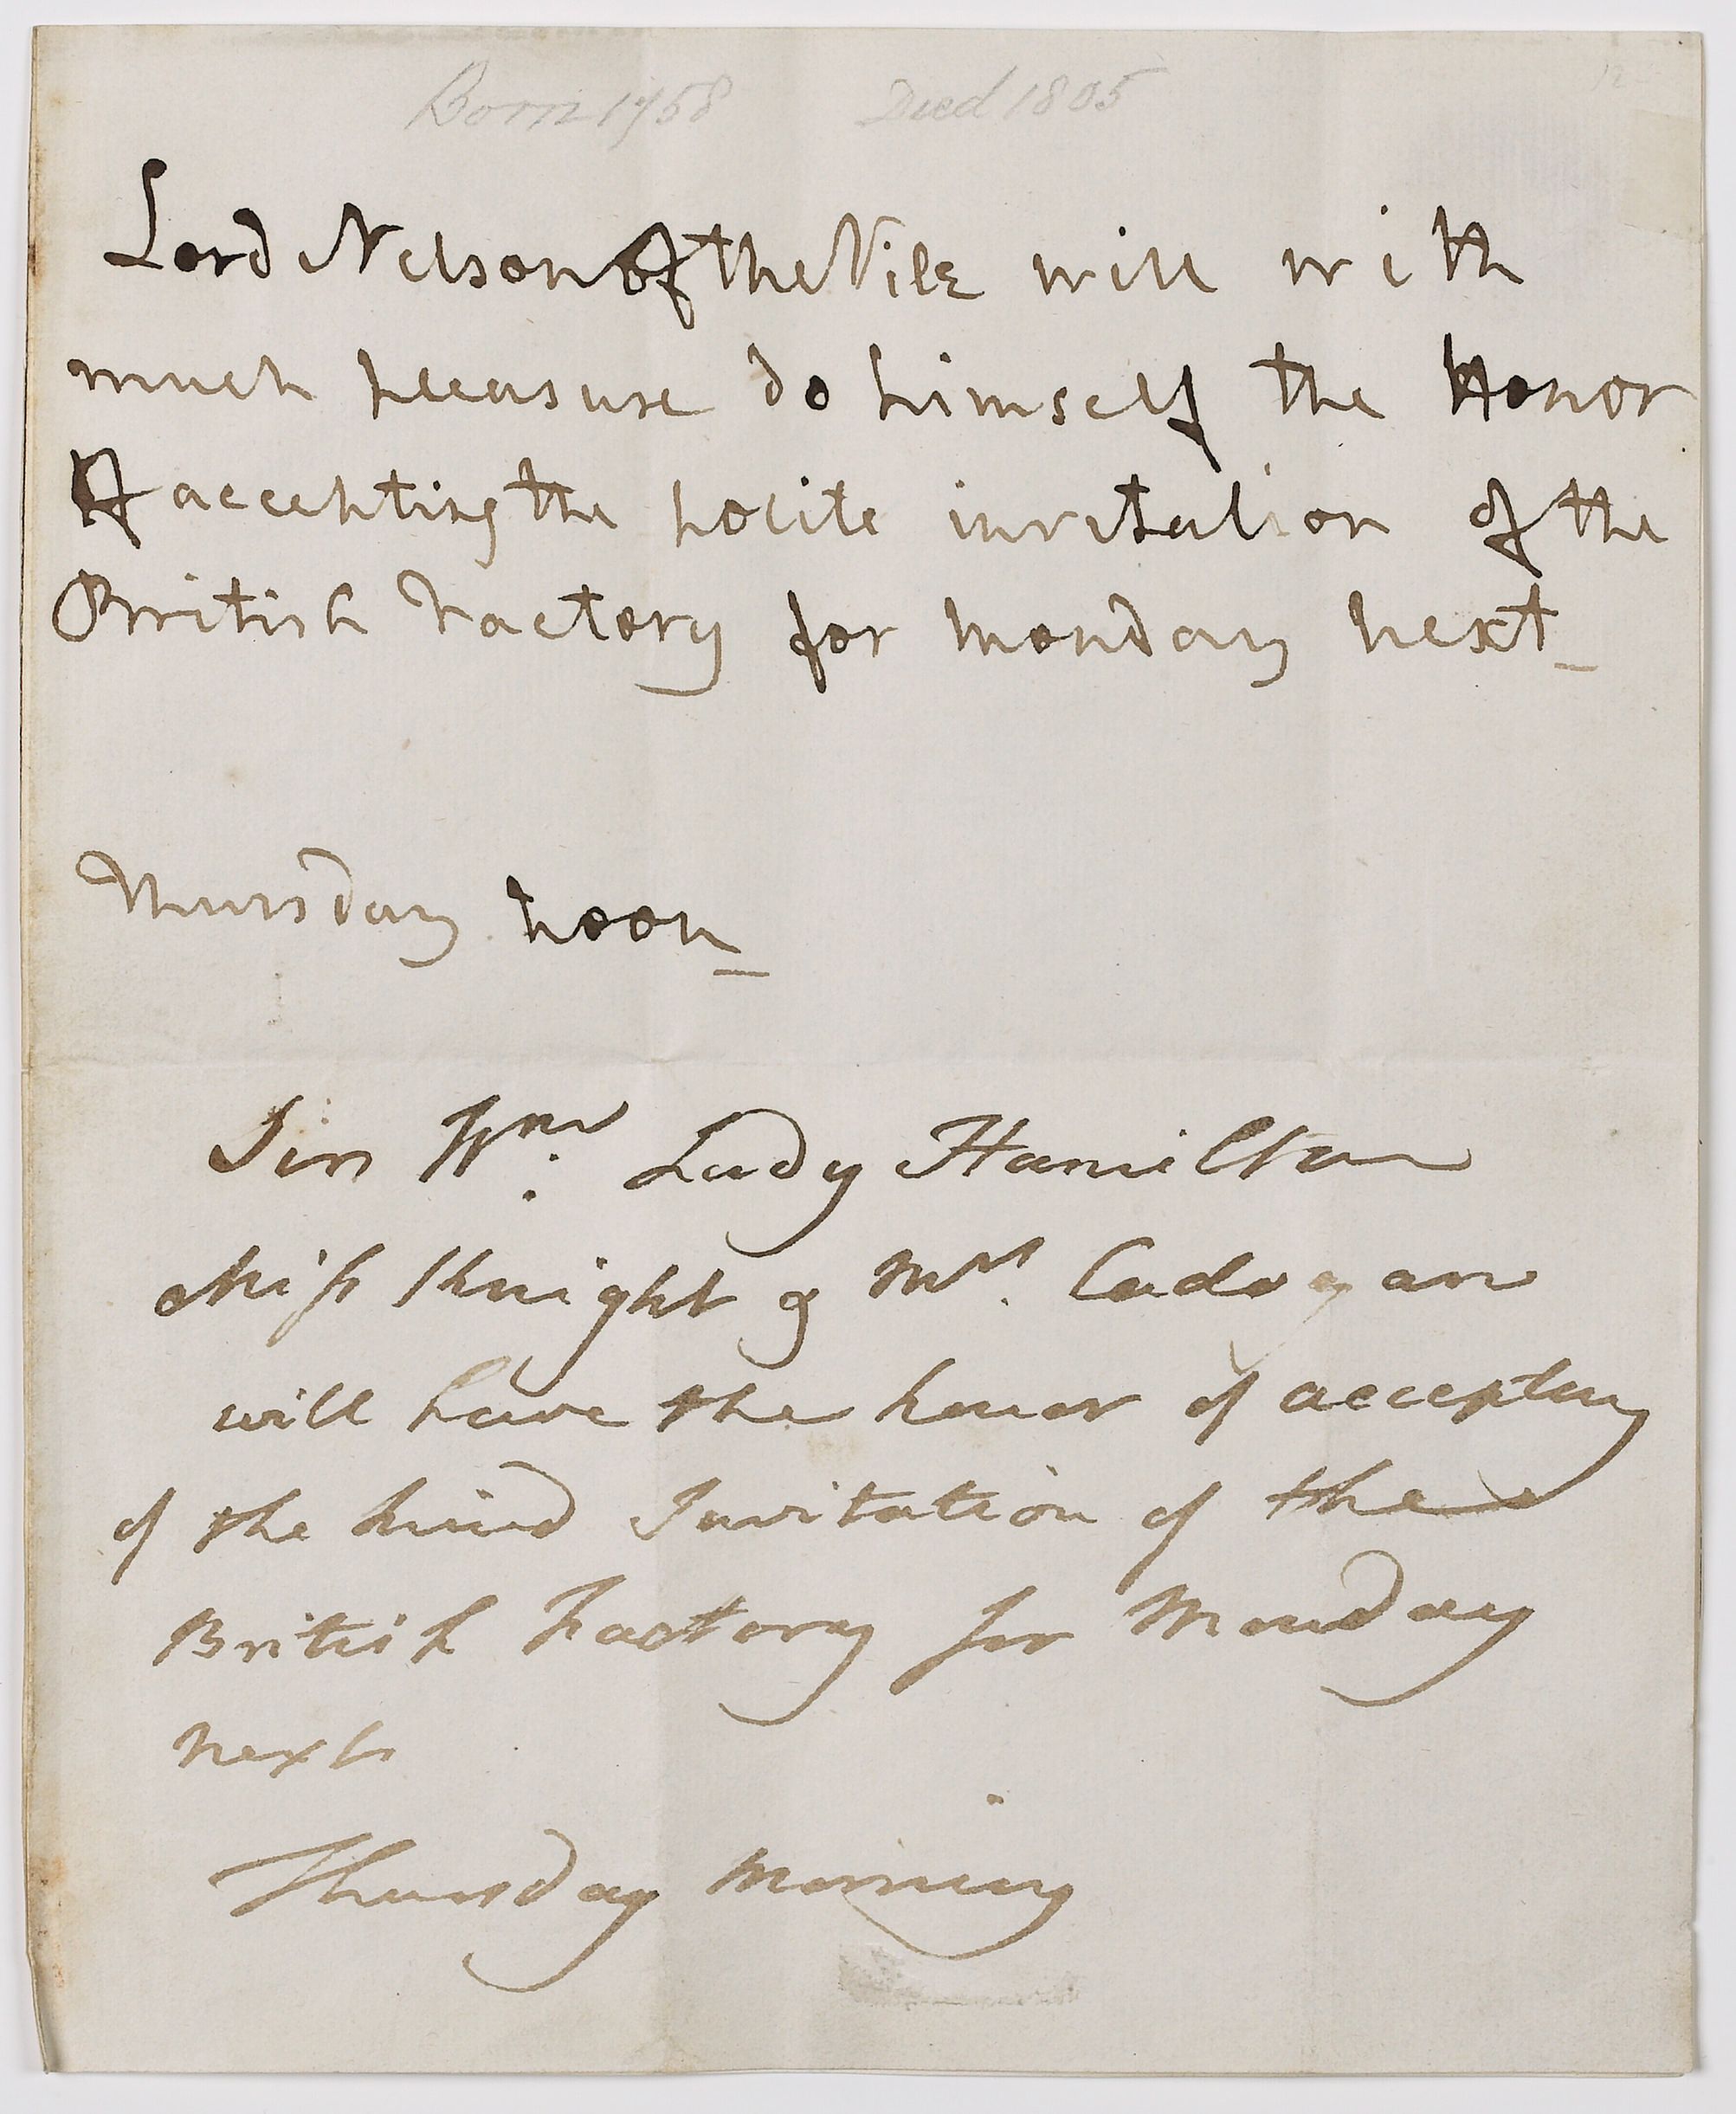 Born 1758 Died 1805
12
Lord Nelson of the Nile will with
much pleasure do himself the Honor
of accepting the polite invitation of the
British Factory for Monday next_
Thursday noon_
Sir Wm. Lady Hamilton
Miss Knight & Mrs. Cadogan
will have the honor of accepting
of the kind Invitation of the
British Factory for Monday
next
Thursday Morning